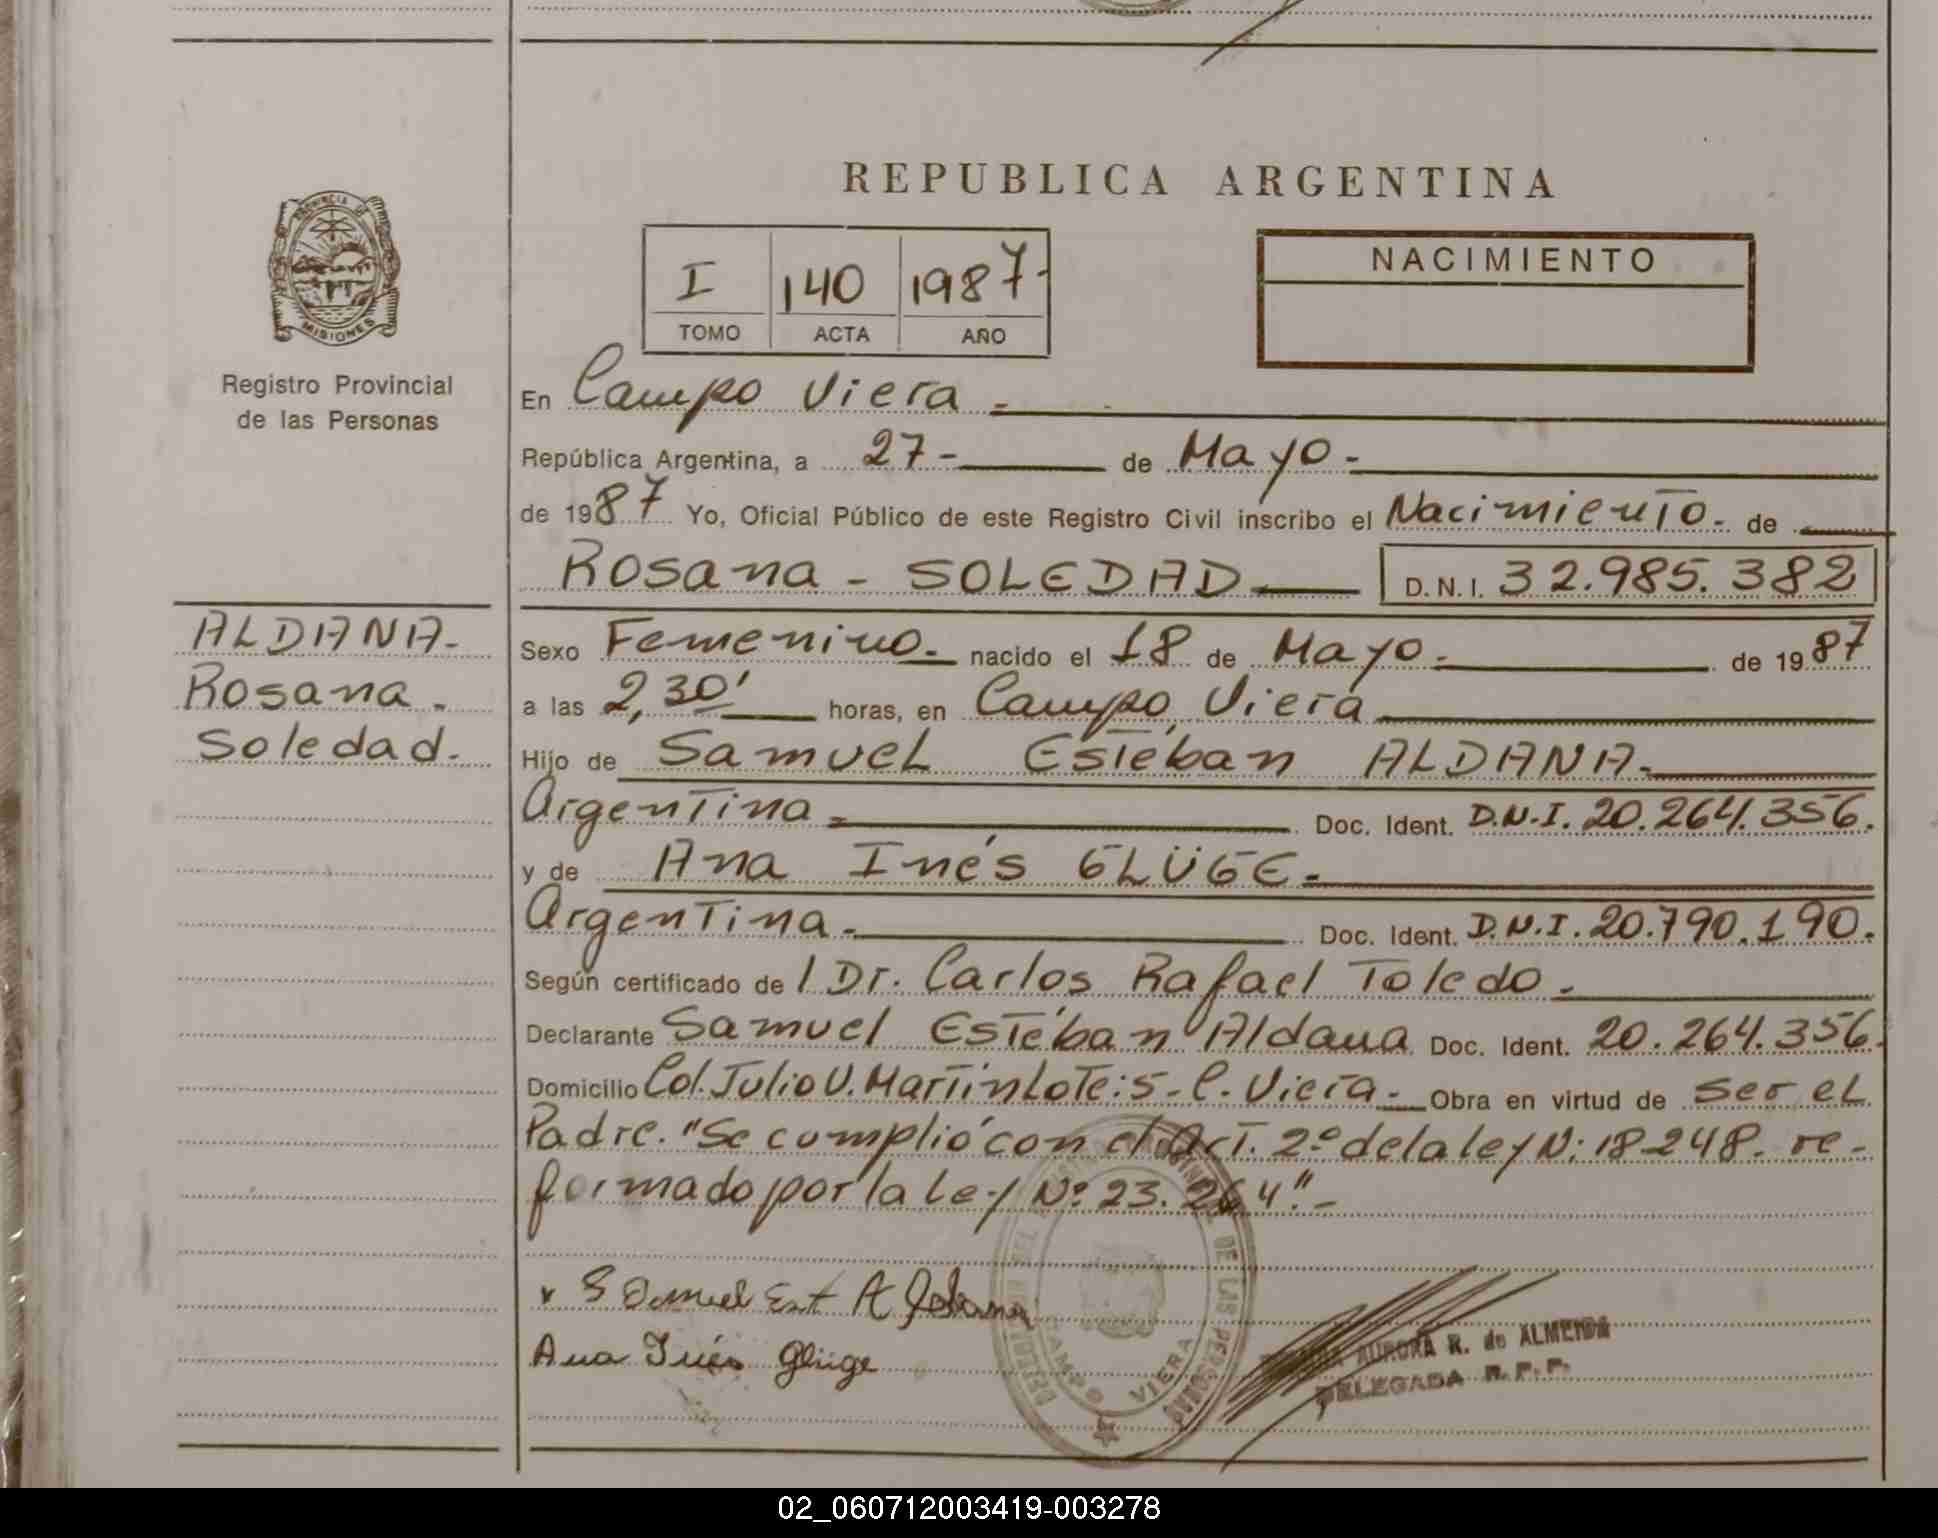 REPUBLICA ARGENTINA
PROVINCIA DE
MISIONES
Registro Provincial
de las Personas
I 140 1987-
TOMO ACTA AÑO
NACIMIENTO
En Campo Viera -
República Argentina, a 27- de Mayo -
de 1987 Yo, Oficial Público de este Registro Civil inscribo el Nacimiento - de
Rosana - SOLEDAD D.N.I. 32.985.382
ALDANA-
Rosana -
Soledad.
Sexo Femenino. nacido el 18 de Mayo - de 1987
a las 2,30' horas, en Campo Viera
Hijo de Samuel Estéban ALDANA.
Argentina - Doc. Ident. D.N.I. 20.264.356.
y de Ana Inés GLÜGE -
Argentina. Doc. Ident. D.N.I. 20.790.190.
Según certificado de l Dr. Carlos Rafael Toledo.
Declarante Samuel Estéban Aldana Doc. Ident. 20.264.356.
Domicilio Col. Julio U. Martin Lote: 5 - C. Viera - Obra en virtud de ser el
Padre. "Se cumplió con el Art. 2º de la ley N: 18-248. re-
formado por la Ley Nº 23.264". -
Samuel Est Aldana
Ana Inés Glüge
DE LAS PERSONAS
CAMPO VIERA
AURORA R. de ALMEIDA
DELEGADA R. P. P.
02_060712003419-003278